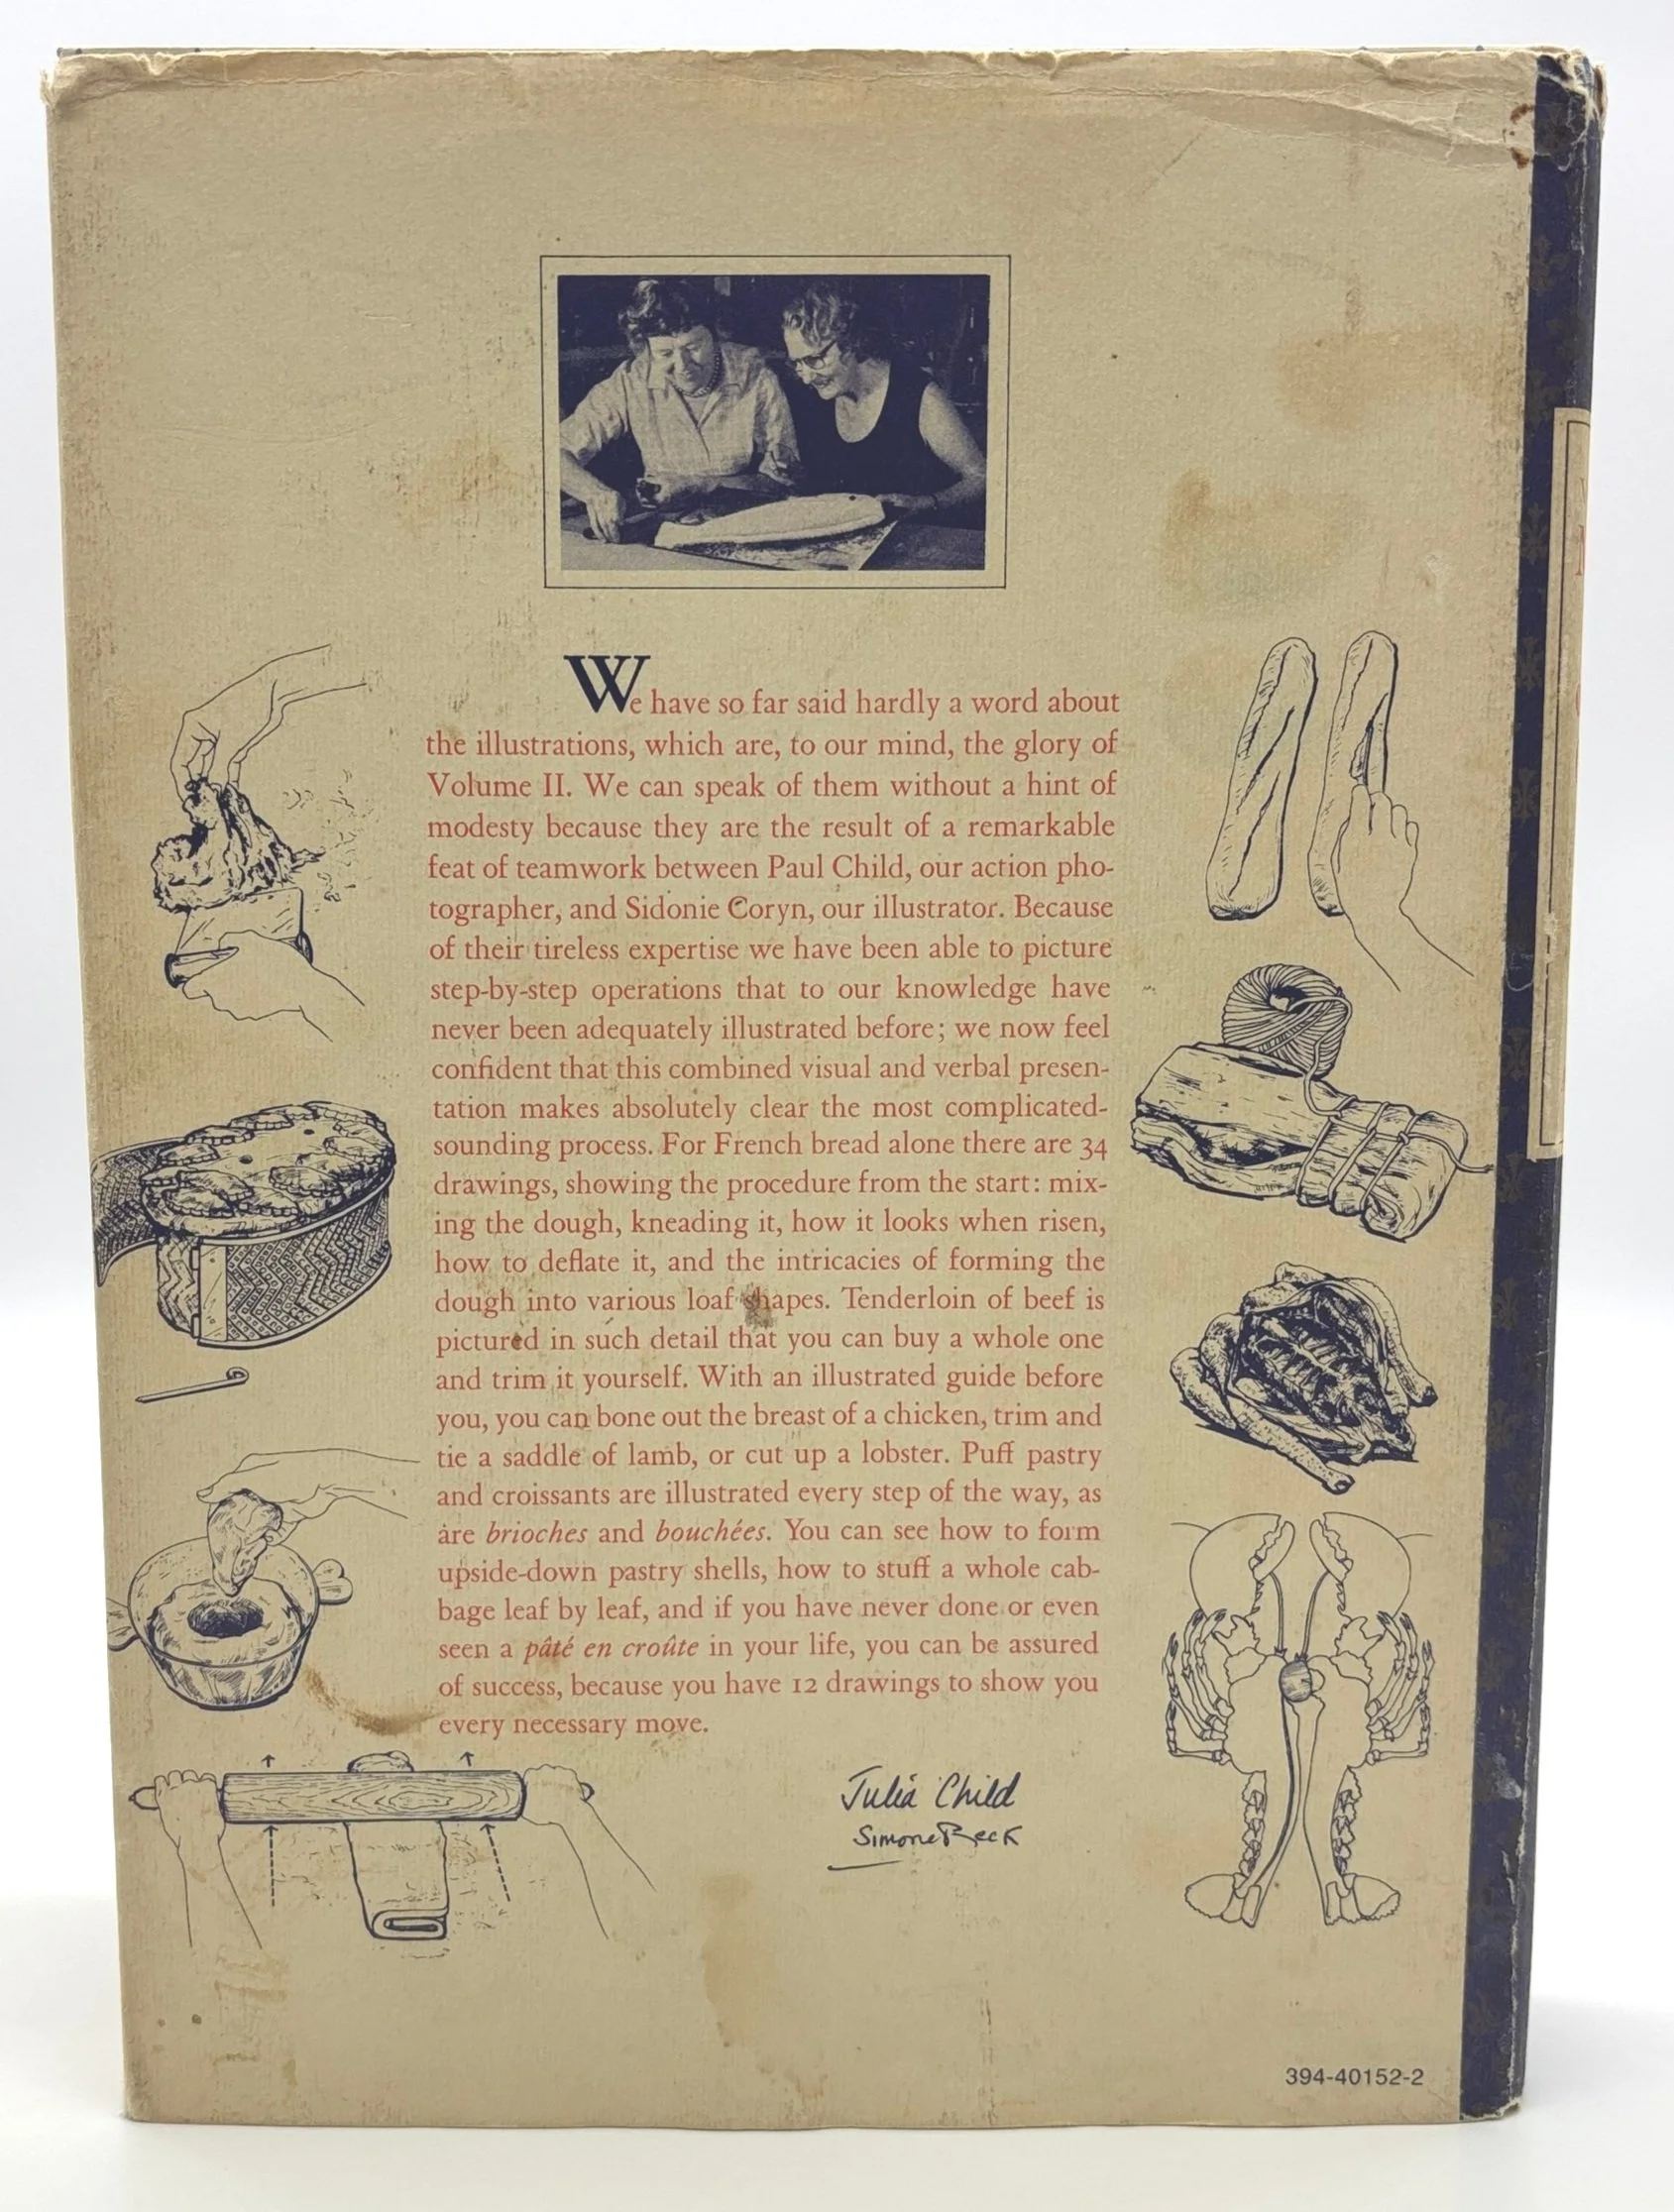 We have so far said hardly a word about
the illustrations, which are, to our mind, the glory of
Volume II. We can speak of them without a hint of
modesty because they are the result of a remarkable
feat of teamwork between Paul Child, our action pho-
tographer, and Sidonie Coryn, our illustrator. Because
of their tireless expertise we have been able to picture
step-by-step operations that to our knowledge have
never been adequately illustrated before; we now feel
confident that this combined visual and verbal presen-
tation makes absolutely clear the most complicated-
sounding process. For French bread alone there are 34
drawings, showing the procedure from the start: mix-
ing the dough, kneading it, how it looks when risen,
how to deflate it, and the intricacies of forming the
dough into various loaf shapes. Tenderloin of beef is
pictured in such detail that you can buy a whole one
and trim it yourself. With an illustrated guide before
you, you can bone out the breast of a chicken, trim and
tie a saddle of lamb, or cut up a lobster. Puff pastry
and croissants are illustrated every step of the way, as
are brioches and bouchées. You can see how to form
upside-down pastry shells, how to stuff a whole cab-
bage leaf by leaf, and if you have never done or even
seen a pâté en croûte in your life, you can be assured
of success, because you have 12 drawings to show you
every necessary move.
Julia Child
Simone Beck
394-40152-2